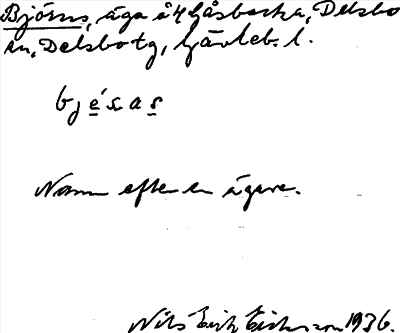 Björns, äga å 4 Gåsbacka, Delsbo
sn, Delsbo tg, Gävleb. l.
bjésas
Namn efter en ägare.
Nils Erik Eriksson 1936.